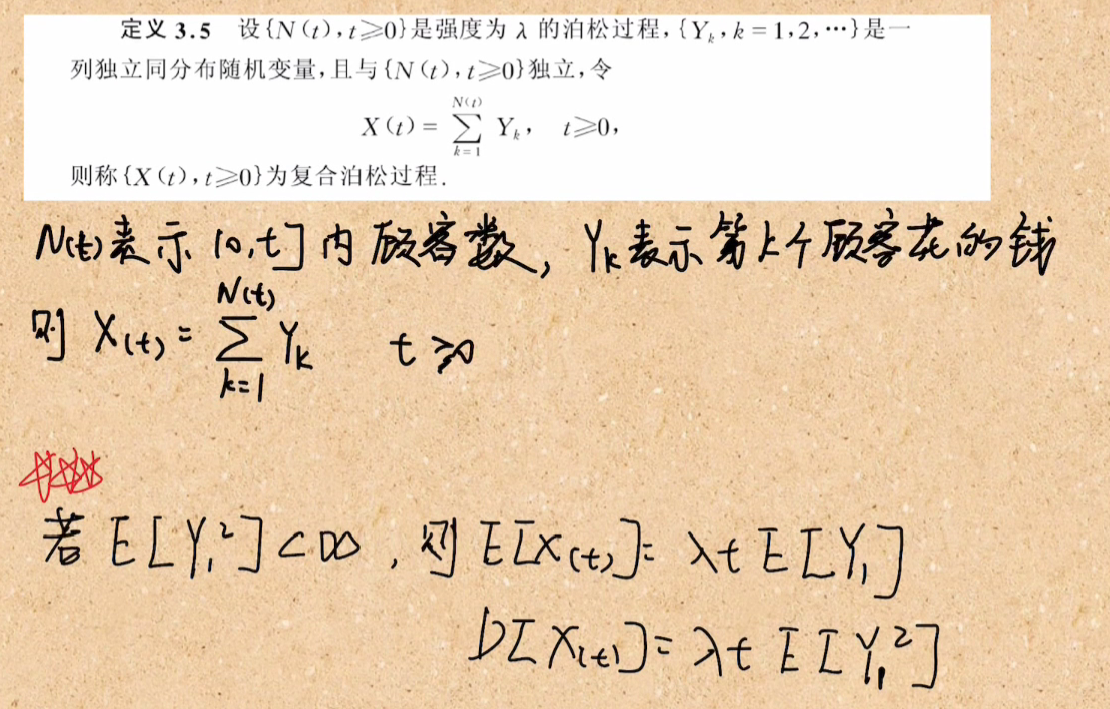 定义 3.5 设{N(t),t≥0}是强度为 λ 的泊松过程,{Yₖ,k=1,2,⋯}是一
列独立同分布随机变量,且与{N(t),t≥0}独立,令
X(t)=∑_{k=1}^{N(t)} Yₖ, t≥0,
则称{X(t),t≥0}为复合泊松过程.
N(t)表示 (0,t] 内顾客数, Yₖ表示第k个顾客花的钱
则 X(t)=∑_{k=1}^{N(t)} Yₖ t≥0
若 E[Y₁²]<∞, 则 E[X(t)]=λt E[Y₁]
D[X(t)]=λt E[Y₁²]